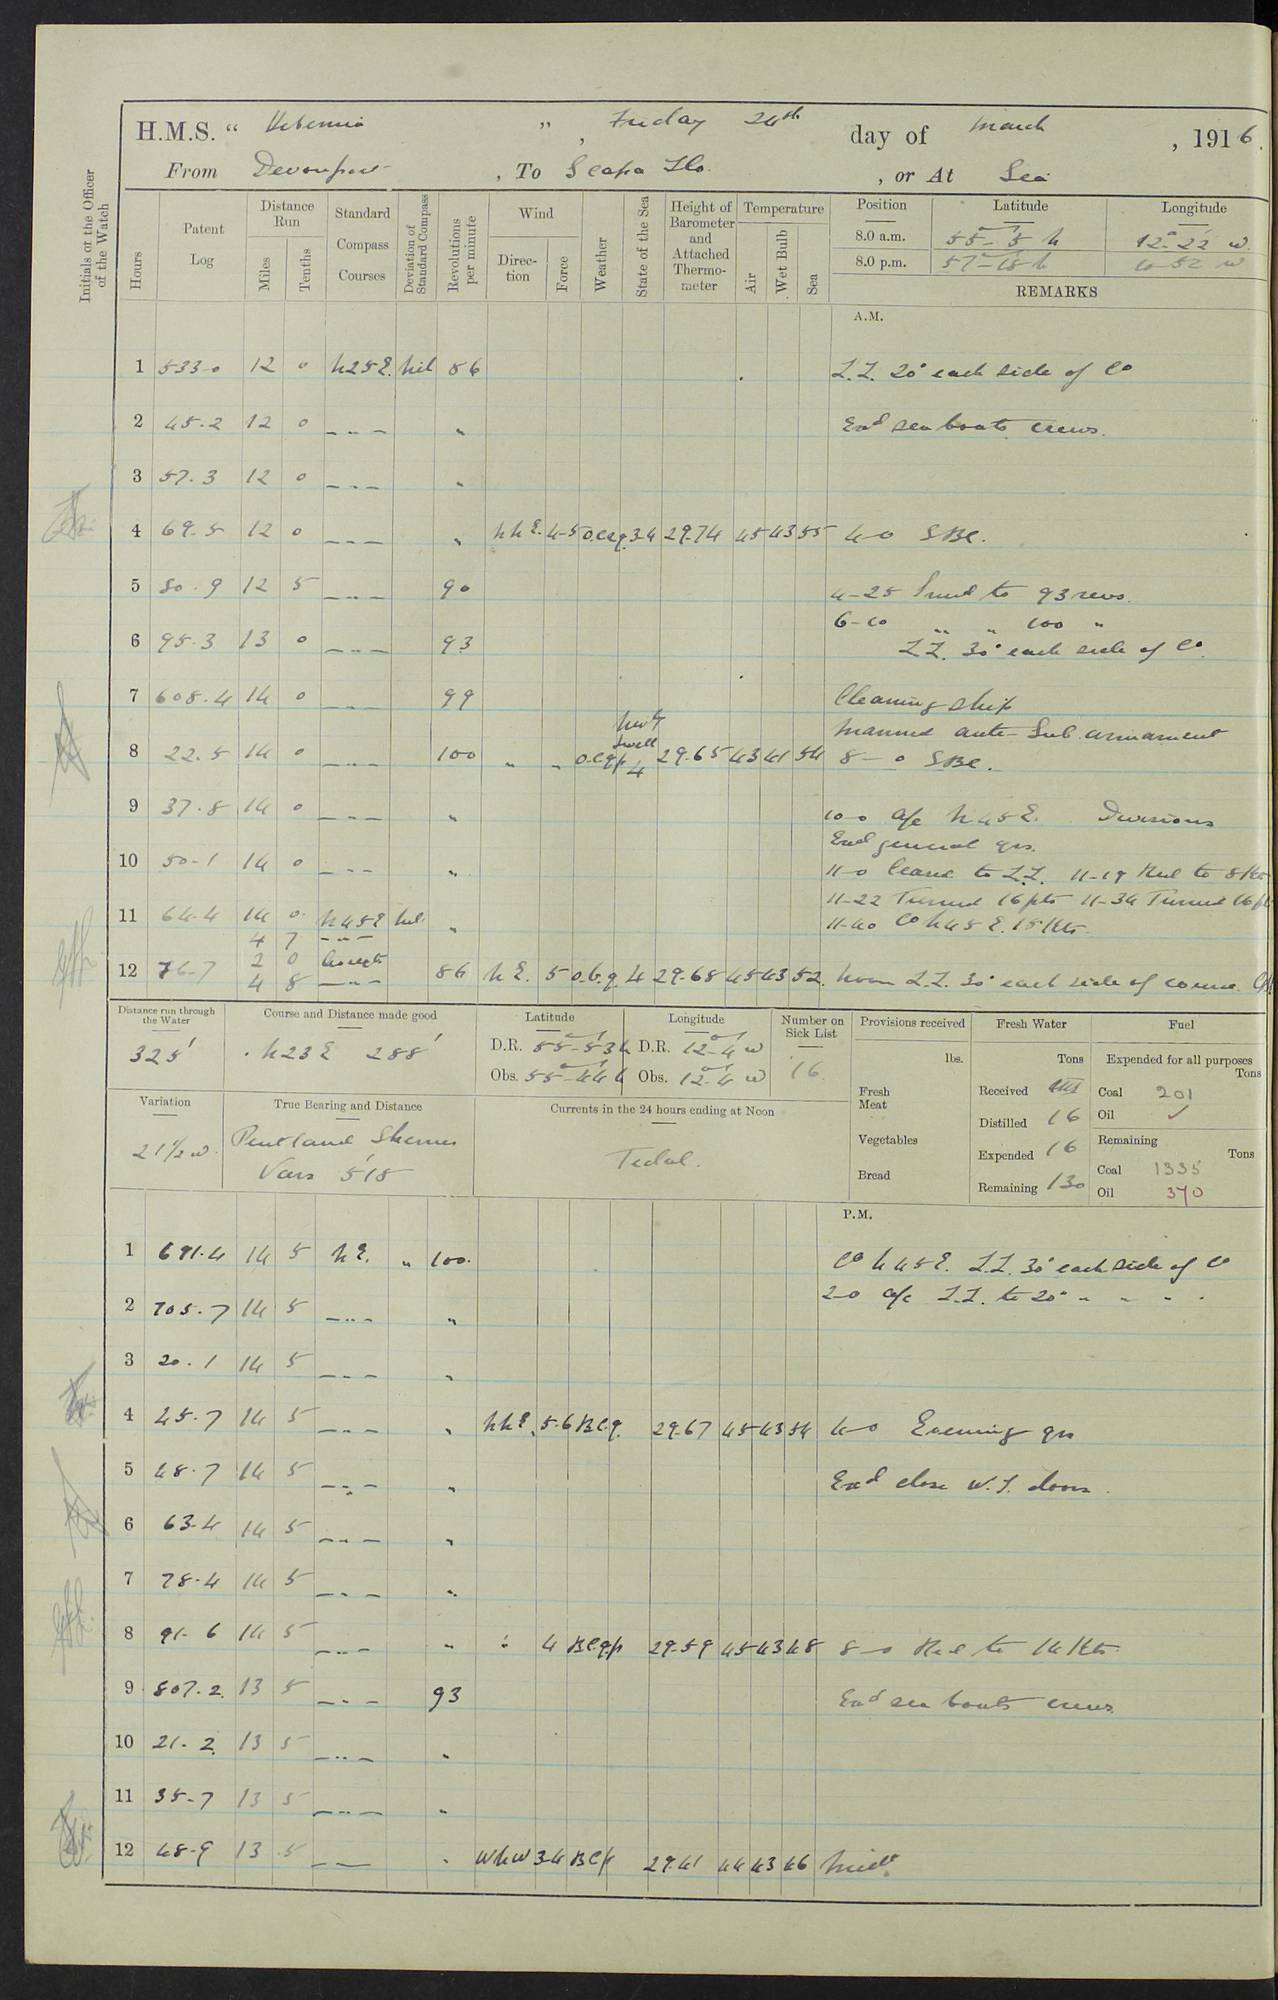 H.M.S. " Hibernia ", Friday 24th day of March, 1916.
From Devonport, To Scapa Flo., or At Sea
Initials of the Officer of the Watch
Hours Patent Log Distance Run Miles Tenths Standard Compass Courses Deviation of Standard Compass Revolutions per minute Wind Direction Force Weather State of the Sea Height of Barometer and Attached Thermometer Temperature Air Wet Bulb Sea Position Latitude Longitude
8.0 a.m. 55-5 N 12-22 W
8.0 p.m. 57-18 N 10-52 W
REMARKS
A.M.
1 533.0 12 0 N25E. Nil 86 Z.Z. 20° each side of Co
2 45.2 12 0 — " — " Exd sea boats crews.
3 57.3 12 0 — " — "
4 69.5 12 0 — " — " NNE. 4-5 o.c.q. 3-4 29.74 45 43 55 4-0 SBC.
5 80.9 12 5 — " — 90 4-25 Incd to 93 revs.
6-10 " " 100 "
6 95.3 13 0 — " — 93 Z.Z. 30° each side of Co.
7 608.4 14 0 — " — 99 Cleaning ship
Manned anti-Sub. armament
8 22.5 14 0 — " — 100 " " o.c.q.p. Nwly Swell 4 29.65 43 41 54 8-0 SBC.
9 37.8 14 0 — " — " 10-0 a/c N45E. Divisions
Exd general qrs.
10 50.1 14 0 — " — " 11-0 Ceased to Z.Z. 11-19 Red to 8 Kts
11-22 Turned 16 pts 11-34 Turned 16 pts
11 64.4 14 0 N45E Nil. " 11-40 Co N45E. 15 Kts.
4 7 — " —
2 0
12 76.7 4 8 — " — 86 N E. 5 o.b.q. 4 29.68 45 43 52. Noon Z.Z. 30° each side of course.
Distance run through the Water 325'
Course and Distance made good N23E 288'
Latitude D.R. 55-53 N Obs. 55-44 N
Longitude D.R. 12-4 W Obs. 12-4 W
Number on Sick List 16
Provisions received lbs.
Fresh Meat
Vegetables
Bread
Fresh Water Tons
Received Nil
Distilled 16
Expended 16
Remaining 130
Fuel
Expended for all purposes Tons
Coal 201
Oil ✓
Remaining Tons
Coal 1335
Oil 370
Variation 21½ W.
True Bearing and Distance Pentland Skerries
Vars 515
Currents in the 24 hours ending at Noon Tidal.
P.M.
1 691.4 14 5 N E. " 100. Co N45E. Z.Z. 30° each side of Co
2 705.7 14 5 — " — " 2-0 a/c Z.Z. to 20° " " " "
3 20.1 14 5 — " — "
4 45.7 14 5 — " — " NNE. 5-6 B.c.q. 29.67 45 43 54 4-0 Evening qrs
5 48.7 14 5 — " — " Exd close W.T. doors.
6 63.4 14 5 — " — "
7 78.4 14 5 — " — "
8 91.6 14 5 — " — " " 4 B.c.q.p. 29.59 45 43 48 8-0 Red to 14 Kts.
9 807.2 13 5 — " — 93 Exd sea boats crews.
10 21.2 13 5 — " — "
11 35.7 13 5 — " — "
12 48.9 13 5 — — " WNW 3-4 B.c.p. 29.41 44 43 46 Midt.